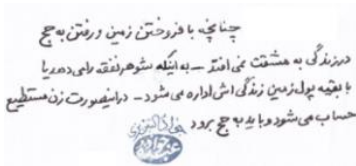 چنانچه با فروختن زمین و رفتن به حج
در زندگی به مشقت نمی افتد – به اینکه شوهر نفقه را می دهد و یا
با بقیه پول زمین زندگی اش اداره می شود – در اینصورت زن مستطیع
حساب می شود و باید به حج برود